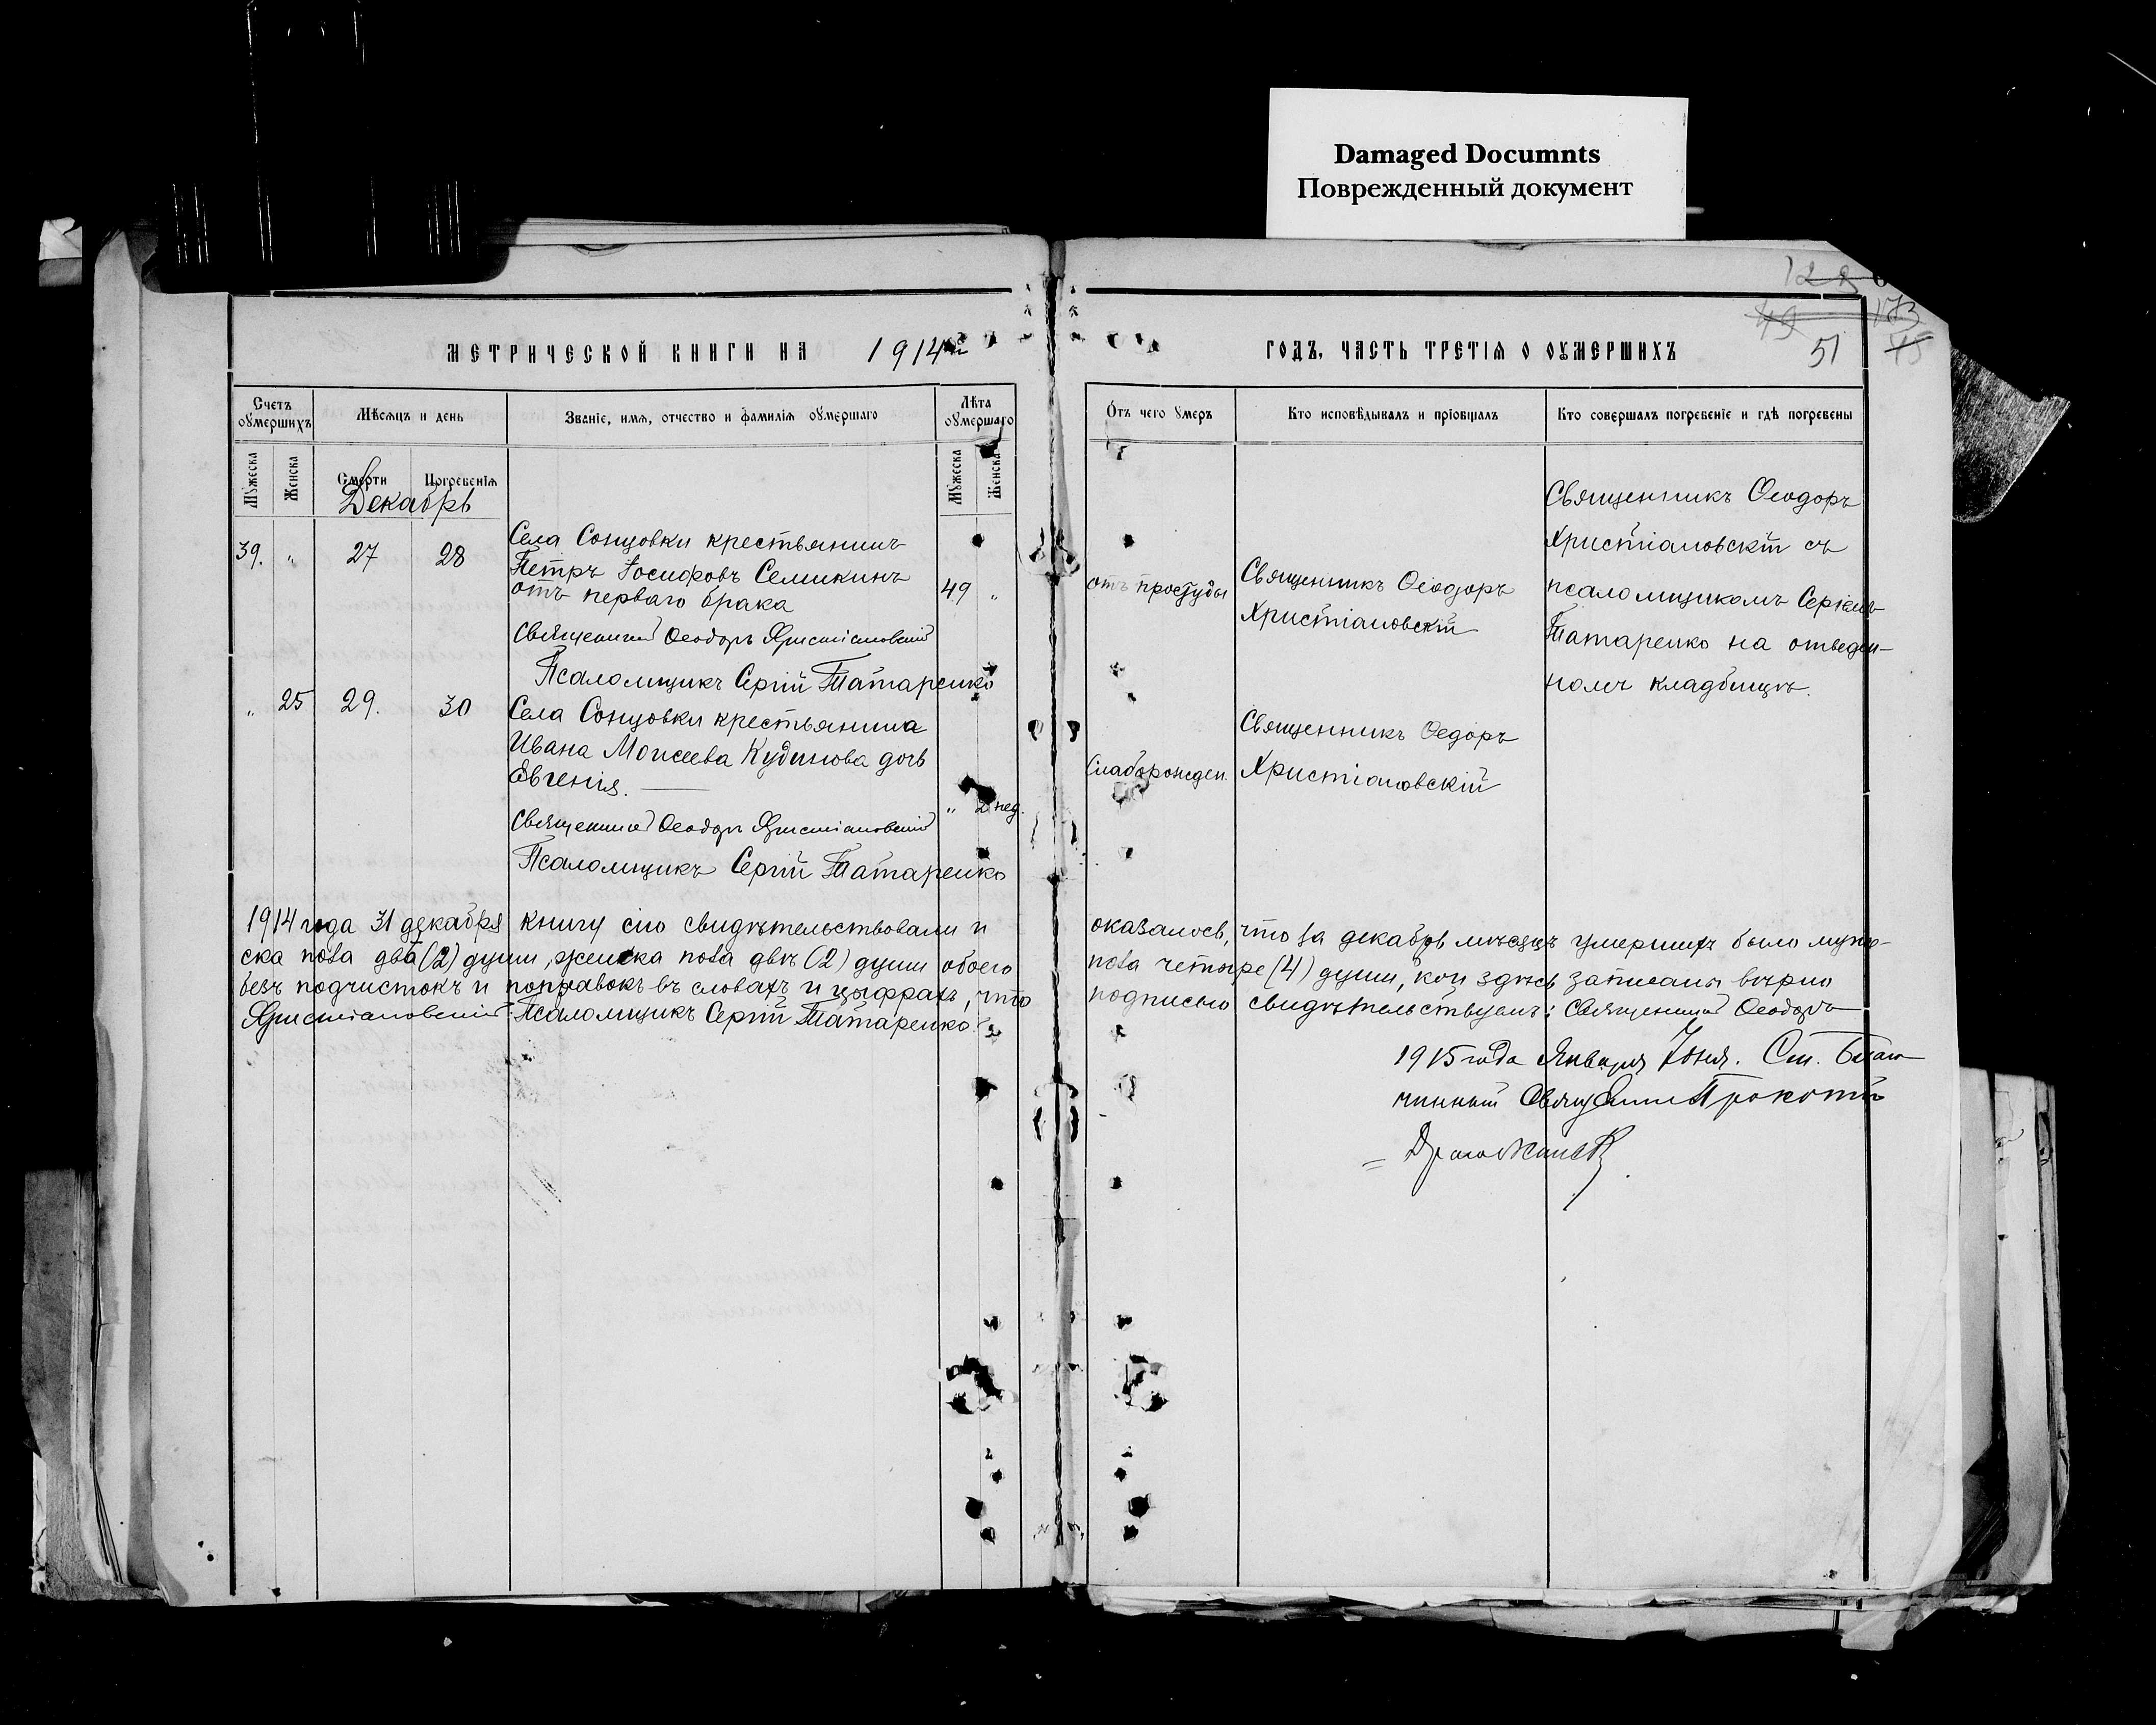 Damaged Documnts
Поврежденный документ
51
МЕТРИЧЕСКОЙ КНИГИ НА 1914й ГОДЪ, ЧАСТЬ ТРЕТІЯ О ОУМЕРШИХЪ
Счетъ оумершихъ
Мѣсяцъ и день
Званіе, имя, отчество и фамилія оумершаго
Лѣта оумершаго
Отъ чего умеръ
Кто исповѣдывалъ и пріобщалъ
Кто совершалъ погребеніе и гдѣ погребены
Мужеска
Женска
Смерти
Погребенія
Мужеска
Женска
Декабрь
39. „ 27 28
Села Сонцовки крестьянинъ
Петръ Іосифовъ Семикинъ
отъ перваго брака
49 „
отъ простуды
Священникъ Ѳеодоръ
Христіановскій
Священникъ Ѳеодоръ
Христіановскій съ
псаломщикомъ Сергіемъ
Татаренко на отведен-
номъ кладбищѣ.
Священникъ Ѳеодоръ Христіановскій
Псаломщикъ Сергій Татаренко
„ 25 29. 30
Села Сонцовки крестьянина
Ивана Моисеева Кудинова дочь
Евгенія.
„ 2 нед.
Слаборожден.
Священникъ Ѳедоръ
Христіановскій
Священникъ Ѳеодоръ Христіановскій
Псаломщикъ Сергій Татаренко
1914 года 31 декабря книгу сію свидѣтельствовали и оказалось, что за декабрь мѣсяцъ умершихъ было муже-
ска пола два (2) души, женска пола двѣ (2) души обоего пола четыре (4) души, кои здѣсь записаны вѣрно
безъ подчистокъ и поправокъ въ словахъ и цыфрахъ, что подписью свидѣтельствуемъ: Священникъ Ѳеодоръ
Христіановскій. Псаломщикъ Сергій Татаренко
1915 года Января
чинный Священникъ Прокопій